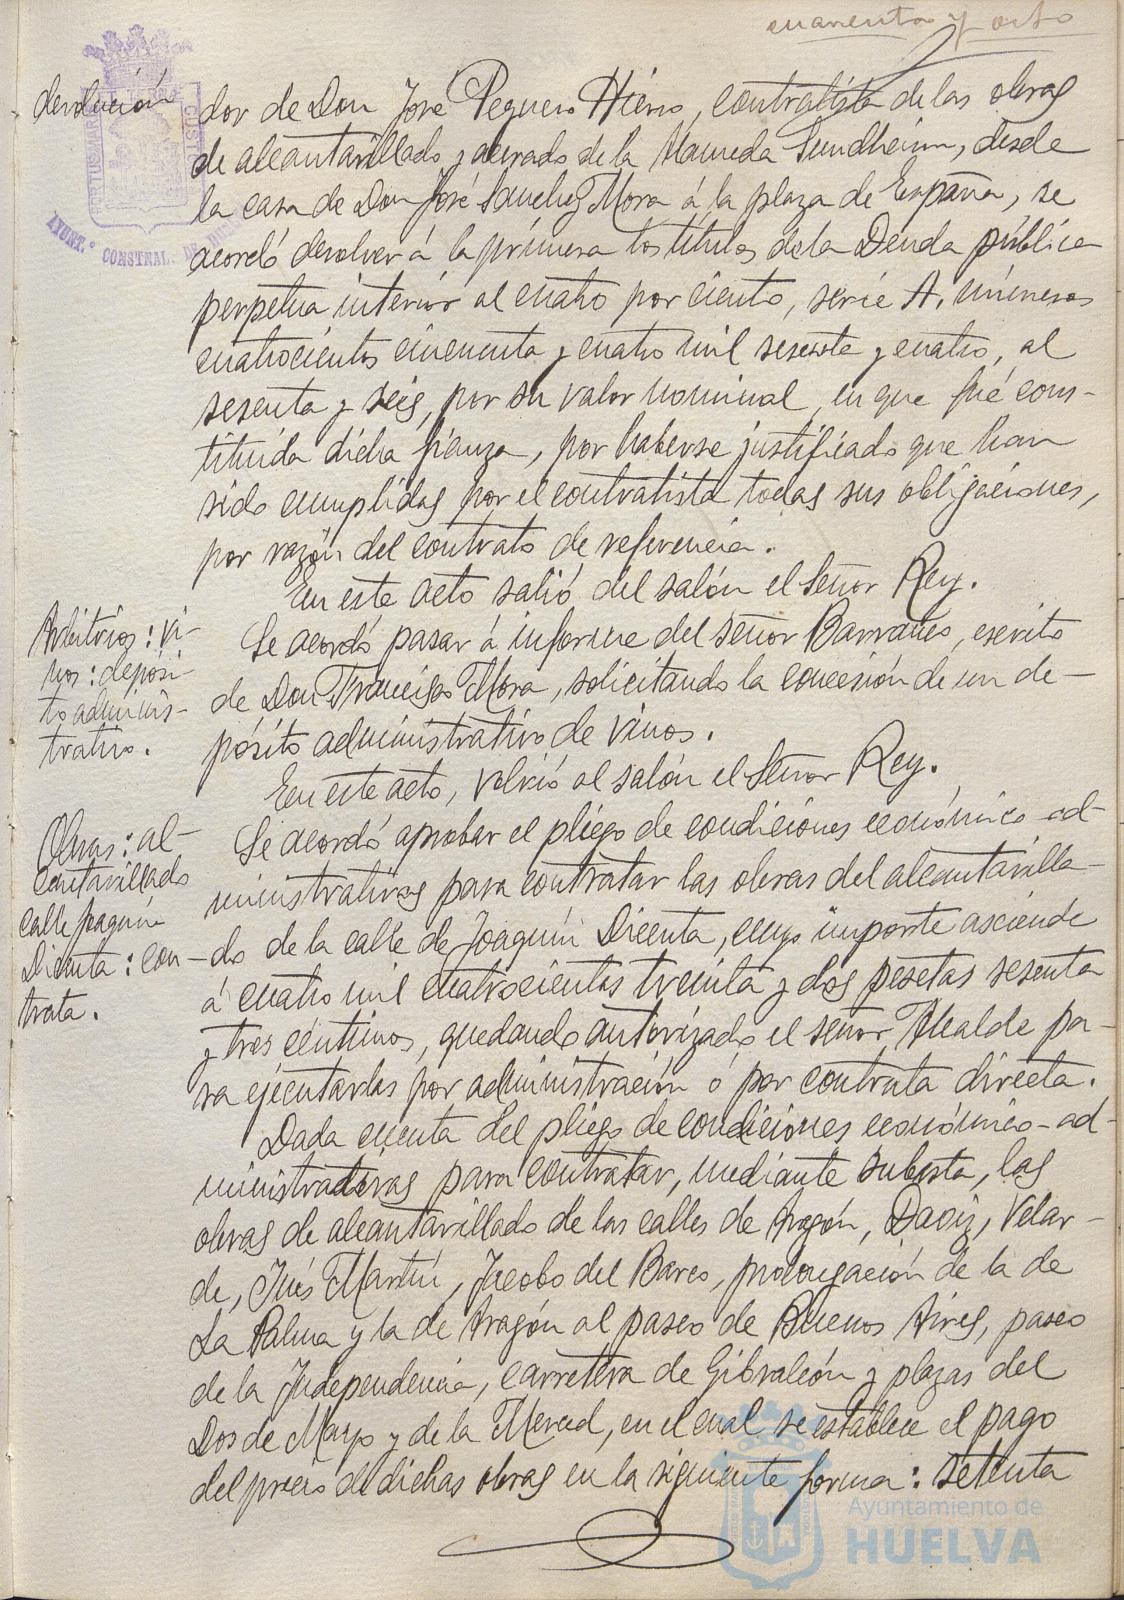 cuarenta y ocho
devolución
dor de Don José Peguero Hierro, contratista de las obras
de alcantarillado y acerado de la Alameda Sundheim, desde
la casa de Don José Sanchez Mora á la plaza de España, se
acordó devolver á la primera los títulos de la Deuda pública
perpetua interior al cuatro por ciento, serie A. números
cuatrocientos cincuenta y cuatro mil sesenta y cuatro, al
sesenta y seis, por su valor nominal, en que fué cons-
tituida dicha fianza, por haberse justificado que han
sido cumplidas por el contratista todas sus obligaciones,
por razón del contrato de referencia.
En este acto salió del salón el Señor Rey.
Arbitrios: vi-
nos: depósi-
to adminis-
trativo.
Se acordó pasar á informe del señor Barranes, escrito
de Don Francisco Mora, solicitando la concesión de un de-
pósito administrativo de vinos.
En este acto, volvió al salón el Señor Rey.
Obras: al-
cantarillado
calle Joaquín
Dicenta: con-
trata.
Se acordó aprobar el pliego de condiciones económico-ad-
ministrativas para contratar las obras del alcantarilla-
do de la calle de Joaquín Dicenta, cuyo importe asciende
á cuatro mil cuatrocientas treinta y dos pesetas sesenta
y tres céntimos, quedando autorizado el señor Alcalde pa-
ra ejecutarlas por administración ó por contrata directa.
Dada cuenta del pliego de condiciones económico-ad-
ministrativas para contratar, mediante subasta, las
obras de alcantarillado de las calles de Aragón, Daoiz, Velar-
de, Inés Martín, Jacobo del Barco, prolongación de la de
La Palma y la de Aragón al paseo de Buenos Aires, paseo
de la Independencia, carretera de Gibraleón y plazas del
Dos de Mayo y de la Merced, en el cual se establece el pago
del precio de dichas obras en la siguiente forma: setenta
AYUNT.º CONSTNAL. DE
Ayuntamiento de
HUELVA